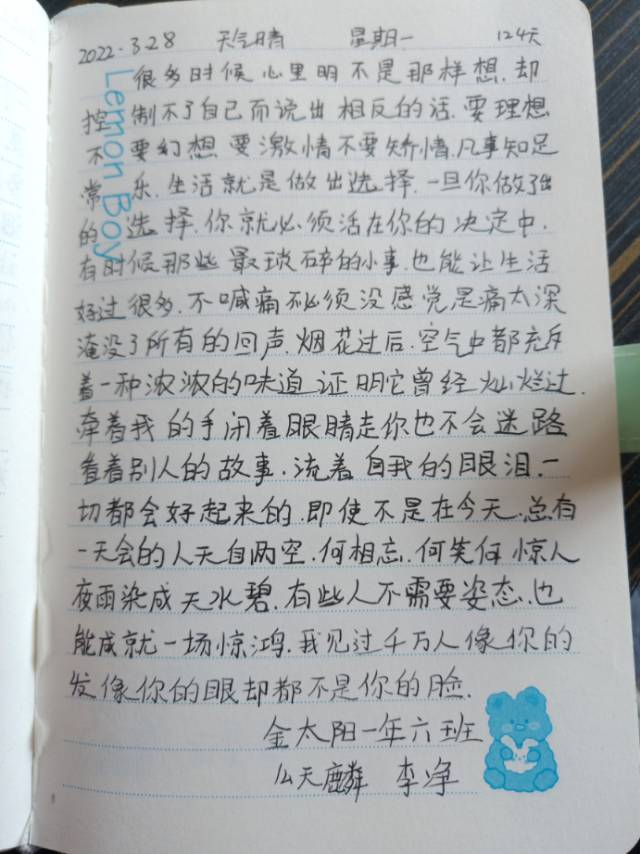 2022.3.28 天气晴 星期一 124天
Lemon Boy
很多时候心里明不是那样想.却
控制不了自己而说出相反的话.要理想
不要幻想要激情不要矫情.凡事知足
常乐.生活就是做出选择.一旦你做了出
的选择.你就必须活在你的决定中.
有时候那些最琐碎的小事.也能让生活
好过很多.不喊痛不必须没感觉是痛太深
淹没了所有的回声.烟花过后.空气中都充斥
着一种浓浓的味道证明它曾经灿烂过.
牵着我的手闭着眼睛走你也不会迷路
看着别人的故事.流着自我的眼泪.一
切都会好起来的.即使不是在今天.总有
一天会的人天自两空.何相忘.何笑何惊人
夜雨染成天水碧.有些人不需要姿态.也
能成就一场惊鸿.我见过千万人像你的
发像你的眼却都不是你的脸.
金太阳一年六班
仫天麟 李净